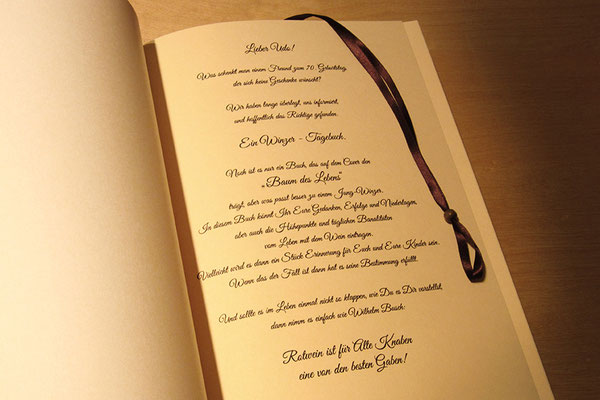 Lieber Udo!
Was schenkt man einem Freund zum 70. Geburtstag,
der sich keine Geschenke wünscht?
Wir haben lange überlegt, uns informiert,
und hoffentlich das Richtige gefunden.
Ein Winzer - Tagebuch.
Noch ist es nur ein Buch, das auf dem Cover den
„Baum des Lebens“
trägt, aber was passt besser zu einem Jung-Winzer.
In diesem Buch könnt Ihr Eure Gedanken, Erfolge und Niederlagen,
aber auch die Höhepunkte und täglichen Banalitäten
vom Leben mit dem Wein eintragen.
Vielleicht wird es dann ein Stück Erinnerung für Euch und Eure Kinder sein.
Wenn das der Fall ist dann hat es seine Bestimmung erfüllt.
Und sollte es im Leben einmal nicht so klappen, wie Du es Dir vorstellst,
dann nimm es einfach wie Wilhelm Busch:
Rotwein ist für Alte Knaben
eine von den besten Gaben!